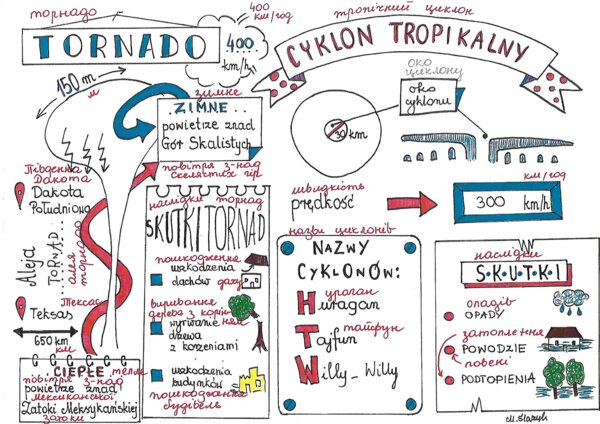 торнадо
TORNADO
400
км/год
400
km/h
150 m
м
зимне
ZIMNE
powietrze znad
Gór Skalistych
повітря з-над
Скелястих гір
Південна
Дакота
Dakota
Południowa
Aleja
TORNAD
алея
торнадо
Техас
Teksas
650 km
км
CIEPŁE
тепле
повітря з-над
powietrze znad
мексиканської
Zatoki Meksykańskiej
затоки
наслідки торнад
SKUTKI TORNAD
пошкодження
uszkodzenia
dachów
даху
виривання
дерева з корінням
wyrwanie
drzewa
z korzeniami
uszkodzenia
budynków
пошкодження
будівель
тропічний циклон
CYKLON TROPIKALNY
око
циклону
oko
cyklonu
30 km
швидкість
prędkość
км/год
300 km/h
назви циклонів
NAZWY
CYKLONÓW:
ураган
Huragan
тайфун
Tajfun
Willy-Willy
наслідки
S·K·U·T·K·I
опадів
OPADY
затоплення
POWODZIE
повені
PODTOPIENIA